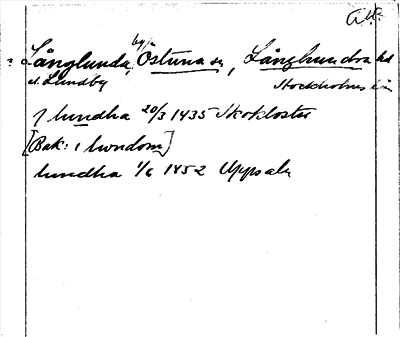 ? Långlunda, Östuna sn, Långhundra hd
el. Lundby
Stockholms län
j lundha 20/3 1435 Skokloster
[Bak: i lwndom]
lundha 1/6 1452 Uppsala